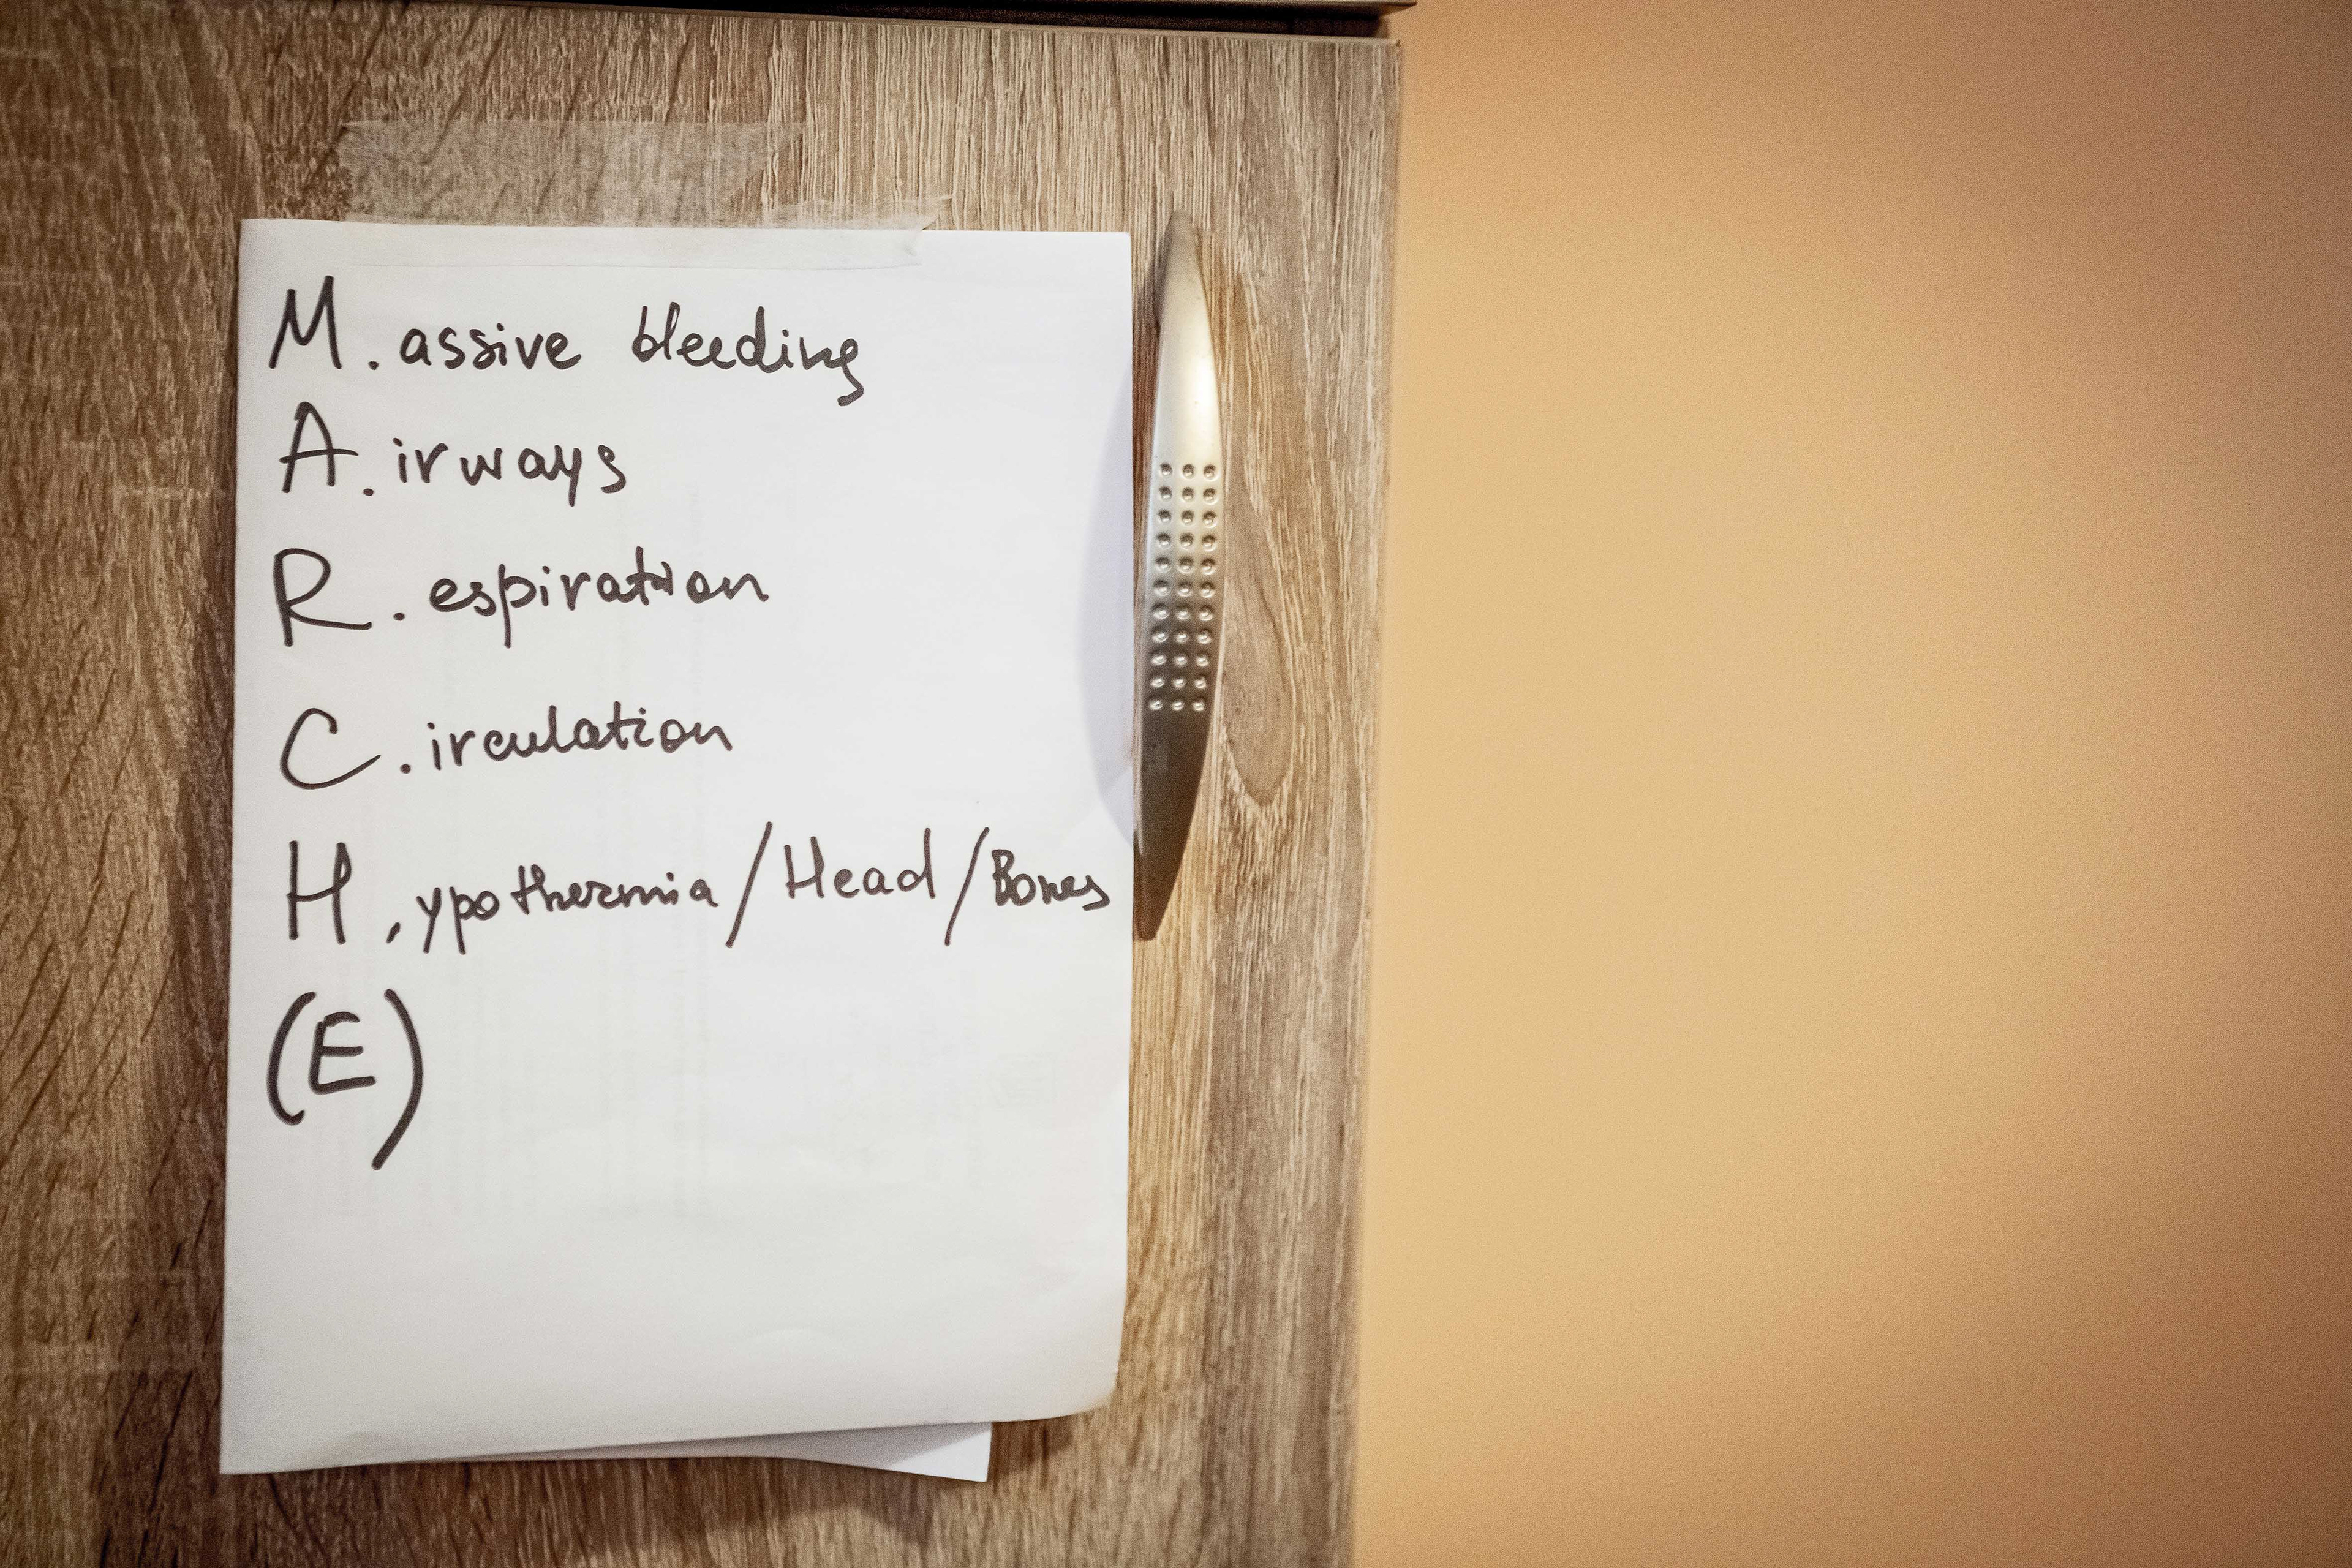 M. assive bleeding
A. irways
R. espiration
C. irculation
H. ypothermia/Head/Bones
(E)